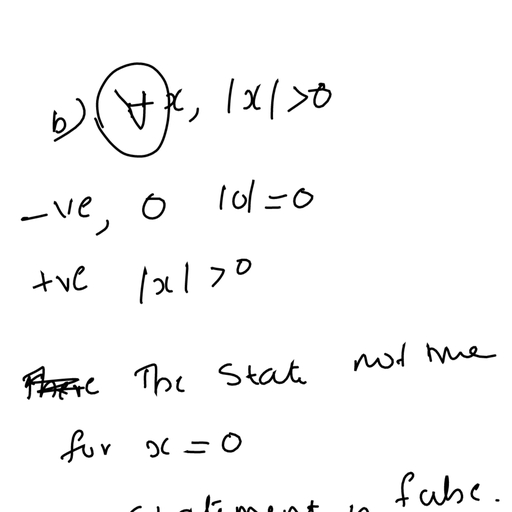 b) ∀x, |x| > 0
-ve, 0 |0| = 0
+ve |x| > 0
The State not true
for x = 0
statement is false.